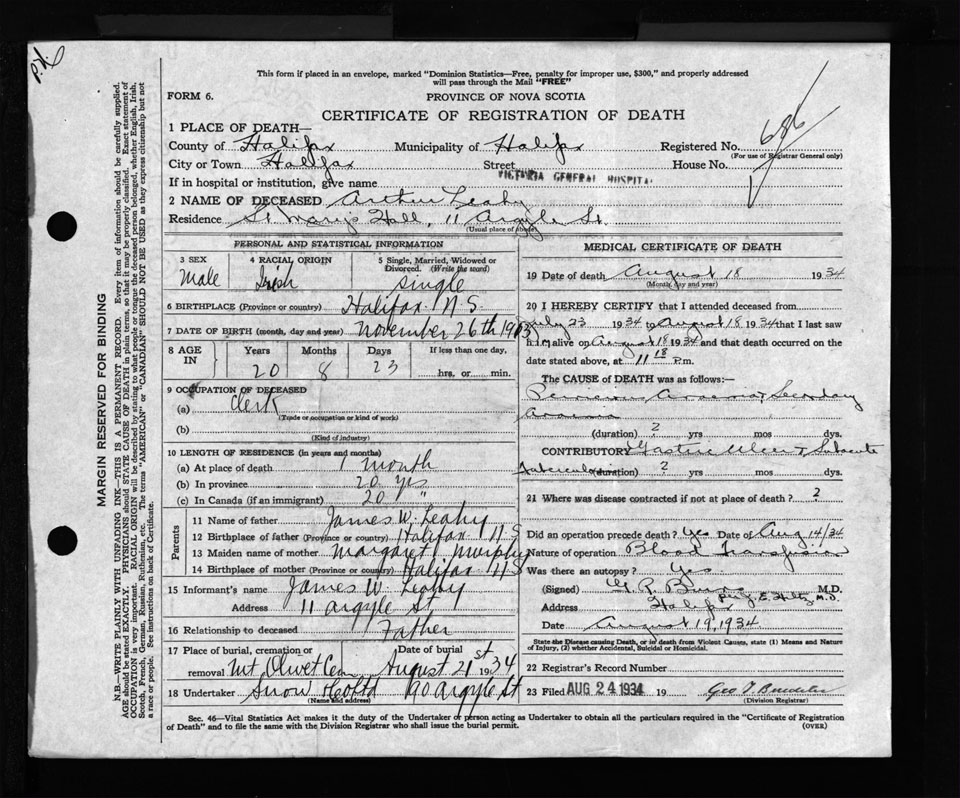 This form if placed in an envelope, marked "Dominion Statistics—Free, penalty for improper use, $300," and properly addressed
will pass through the Mail "FREE"
FORM 6.
PROVINCE OF NOVA SCOTIA
CERTIFICATE OF REGISTRATION OF DEATH
686
1 PLACE OF DEATH—
County of Halifax Municipality of Halifax Registered No.
(For use of Registrar General only)
City or Town Halifax Street House No.
If in hospital or institution, give name VICTORIA GENERAL HOSPITAL
2 NAME OF DECEASED Arthur Leahy
Residence St Mary's Hall, 11 Argyle St.
(Usual place of abode)
PERSONAL AND STATISTICAL INFORMATION
3 SEX Male
4 RACIAL ORIGIN Irish
5 Single, Married, Widowed or Divorced. (Write the word) Single
6 BIRTHPLACE (Province or country) Halifax N.S.
7 DATE OF BIRTH (month, day and year) November 26th 1913
8 AGE IN Years 20 Months 8 Days 23 If less than one day, hrs. or min.
9 OCCUPATION OF DECEASED
(a) Clerk
(Trade or occupation or kind of work)
(b)
(Kind of industry)
10 LENGTH OF RESIDENCE (in years and months)
(a) At place of death 1 month
(b) In province 20 yrs
(c) In Canada (if an immigrant) 20 "
Parents
11 Name of father James W. Leahy
12 Birthplace of father (Province or country) Halifax N S
13 Maiden name of mother Margaret Murphy
14 Birthplace of mother (Province or country) Halifax N S
15 Informant's name James W. Leahy
Address 11 Argyle St
16 Relationship to deceased Father
17 Place of burial, cremation or removal Mt Olivet Cem Date of burial August 21st 1934
18 Undertaker Snow & Co Ltd 90 Argyle St
(Name and address)
MEDICAL CERTIFICATE OF DEATH
19 Date of death August 18 1934
(Month, day and year)
20 I HEREBY CERTIFY that I attended deceased from
July 23 1934 to August 18 1934 that I last saw
him alive on August 18 1934 and that death occurred on the
date stated above, at 11 18 P.m.
The CAUSE of DEATH was as follows:—
Pernicious Anaemia & Secondary
Anaemia
(duration) 2 yrs mos dys.
CONTRIBUTORY Gastric Ulcer & Subacute
Tuberculosis (duration) 2 yrs mos dys.
21 Where was disease contracted if not at place of death? ?
Did an operation precede death? Yes Date of Aug 14/34
Nature of operation Blood Transfusion
Was there an autopsy? Yes
(Signed) M.D.
Address Halifax
Date August 19, 1934
State the Disease causing Death, or in death from Violent Causes, state (1) Means and Nature
of Injury, (2) whether Accidental, Suicidal or Homicidal.
22 Registrar's Record Number
23 Filed AUG 24 1934 19
(Division Registrar)
Sec. 46—Vital Statistics Act makes it the duty of the Undertaker or person acting as Undertaker to obtain all the particulars required in the "Certificate of Registration
of Death" and to file the same with the Division Registrar who shall issue the burial permit.
(OVER)
MARGIN RESERVED FOR BINDING
N.B.—WRITE PLAINLY WITH UNFADING INK—THIS IS A PERMANENT RECORD. Every item of information should be carefully supplied.
AGE should be stated EXACTLY. PHYSICIANS should STATE CAUSE OF DEATH in plain terms, so that it may be properly classified. Exact statement of
OCCUPATION is very important. RACIAL ORIGIN will be described by stating to what people or tongue the deceased person belonged, whether English, Irish,
Scotch, French, German, Russian, Ruthenian, etc. The terms "AMERICAN" or "CANADIAN" SHOULD NOT BE USED as they express citizenship but not
a race or people. See instructions on back of Certificate.